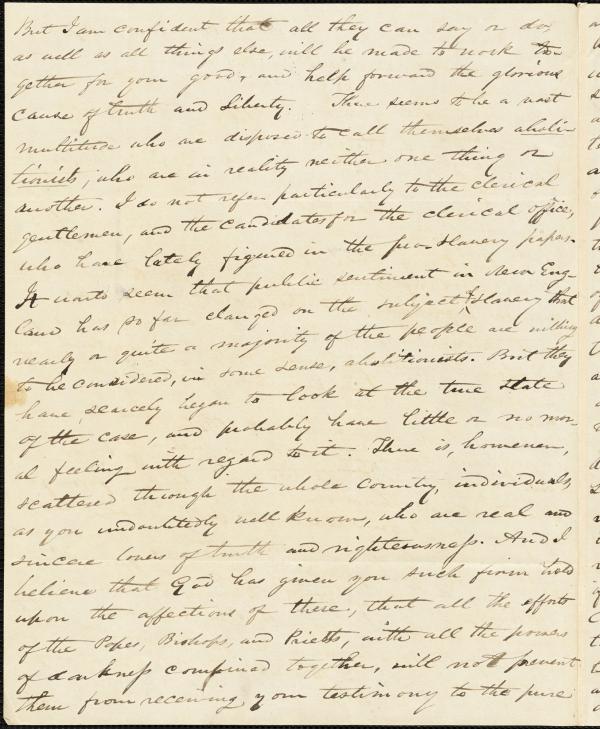 But I am confident that all they can say or do,
as well as all things else, will be made to work to-
gether for your good, and help forward the glorious
cause of truth and Liberty. There seems to be a vast
multitude who are disposed to call themselves aboli-
tionists, who are in reality neither one thing or
another. I do not refer particularly to the clerical
gentlemen, and the candidates for the clerical office,
who have lately figured in the pro-slavery papers.
It would seem that public sentiment in New Eng-
land has so far changed on the subject of slavery that
nearly or quite a majority of the people are willing
to be considered, in some sense, abolitionists. But they
have scarcely begun to look at the true state
of the case, and probably have little or no mor-
al feeling with regard to it. There is, however,
scattered through the whole country, individuals,
as you undoubtedly well know, who are real and
sincere lovers of truth and righteousness. And I
believe that God has given you such firm hold
upon the affections of these, that all the efforts
of the Popes, Bishops, and Priests, with all the powers
of darkness combined together, will not prevent
them from receiving your testimony to the pure